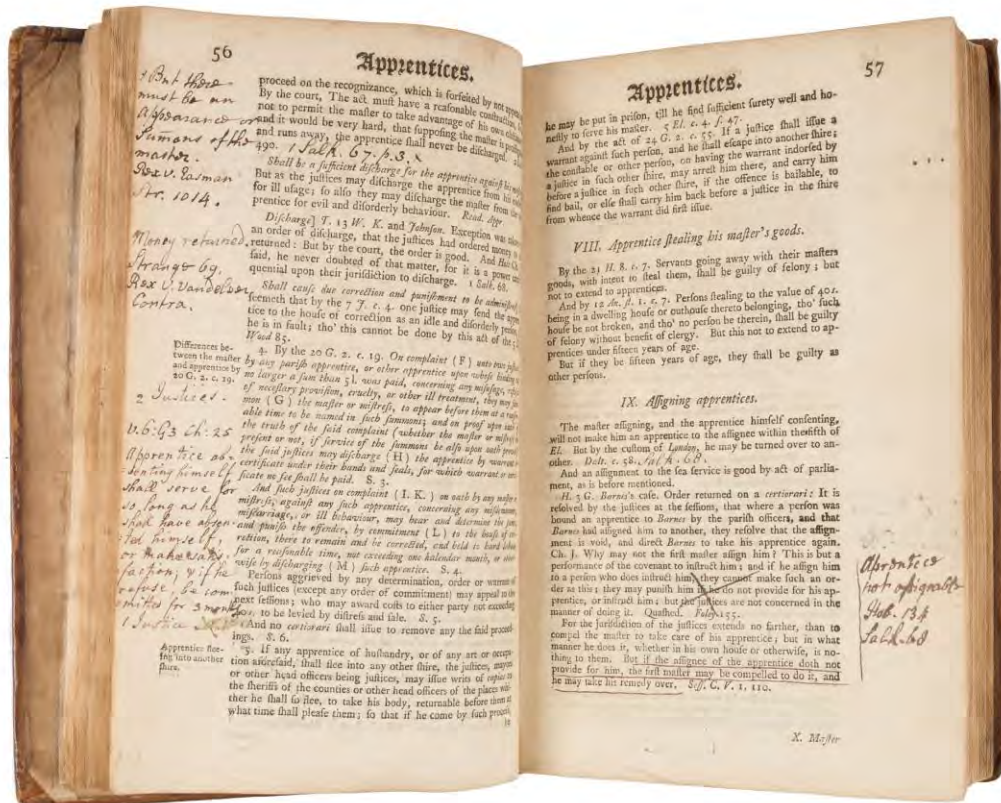 56
Apprentices.
proceed on the recognizance, which is forfeited by not
By the court, The act muſt have a reaſonable
not to permit the maſter to take advantage of his own
and it would be very hard, that ſuppoſing the maſter is
and runs away, the apprentice ſhall never be diſcharged.
490. 1 Salk. 67. p. 3.
Shall be a ſufficient diſcharge for the apprentice againſt his
But as the juſtices may diſcharge the apprentice from his
for ill uſage; ſo alſo they may diſcharge the maſter from the
prentice for evil and diſorderly behaviour. Read. Appr.
Diſcharge] T. 13 W. K. and Johnſon. Exception was
an order of diſcharge, that the juſtices had ordered money
returned: But by the court, the order is good. And Holt Ch.
ſaid, he never doubted of that matter, for it is a power
quential upon their juriſdiction to diſcharge. 1 Salk. 68.
Shall cauſe due correction and puniſhment to be
ſeemeth that by the 7 J. c. 4. one juſtice may ſend the
tice to the houſe of correction as an idle and diſorderly
he is in fault; tho' this cannot be done by this act of the
Wood 85.
4. By the 20 G. 2. c. 19. On complaint (F) unto two
by any pariſh apprentice, or other apprentice upon whoſe binding
no larger a ſum than 5 l. was paid, concerning any miſuſage,
of neceſſary proviſion, cruelty, or other ill treatment, they may
mon (G) the maſter or miſtreſs, to appear before them at a
able time to be named in ſuch ſummons; and on proof upon
the truth of the ſaid complaint (whether the maſter or miſtreſs
preſent or not, if ſervice of the ſummons be alſo upon oath
the ſaid juſtices may diſcharge (H) the apprentice by warrant
certificate under their hands and ſeals, for which warrant or
ficate no fee ſhall be paid. S. 3.
And ſuch juſtices on complaint (I. K.) on oath by any maſter
miſtreſs, againſt any ſuch apprentice, concerning any
miſcarriage, or ill behaviour, may hear and determine the
and puniſh the offender, by commitment (L) to the houſe of
rection, there to remain and be corrected, and held to hard
for a reaſonable time, not exceeding one kalendar month, or
wiſe by diſcharging (M) ſuch apprentice. S. 4.
Perſons aggrieved by any determination, order or warrant of
ſuch juſtices (except any order of commitment) may appeal to the
next ſeſſions; who may award coſts to either party not exceeding
to be levied by diſtreſs and ſale. S. 5.
And no certiorari ſhall iſſue to remove any the ſaid proceed-
ings. S. 6.
5. If any apprentice of huſbandry, or of any art or
tion aforeſaid, ſhall flee into any other ſhire, the juſtices,
or other head officers being juſtices, may iſſue writs of capias
the ſheriffs of the counties or other head officers of the places
ther he ſhall ſo flee, to take his body, returnable before them at
what time ſhall pleaſe them; ſo that if he come by ſuch
But there
must be an
Appearance or
Sumons of the
master.
Rex v. Easman
Str. 1014.
Money returned.
Strange 69.
Rex v. Vandeleer
Contra.
Differences be-
tween the maſter
and apprentice by
20 G. 2. c. 19.
2 Justices.
v. 6. G3 Ch: 25
Apprentice ab-
senting himself
shall serve for
so long as he
shod have absen-
ted himself,
or make satis-
faction; & if he
refuse, be com-
mitted for 3 months
1 Justice
Apprentice flee-
ing into another
ſhire.
57
Apprentices.
he may be put in priſon, till he find ſufficient ſurety well and ho-
neſtly to ſerve his maſter. 5 El. c. 4. ſ. 47.
And by the act of 24 G. 2. c. 55. If a juſtice ſhall iſſue a
warrant againſt ſuch perſon, and he ſhall eſcape into another ſhire;
the conſtable or other perſon, on having the warrant indorſed by
a juſtice in ſuch other ſhire, may arreſt him there, and carry him
before a juſtice in ſuch other ſhire, if the offence is bailable, to
find bail, or elſe ſhall carry him back before a juſtice in the ſhire
from whence the warrant did firſt iſſue.
VIII. Apprentice ſtealing his maſter's goods.
By the 21 H. 8. c. 7. Servants going away with their maſters
goods, with intent to ſteal them, ſhall be guilty of felony; but
not to extend to apprentices.
And by 12 An. ſt. 1. c. 7. Perſons ſtealing to the value of 40 s.
being in a dwelling houſe or outhouſe thereto belonging, tho' ſuch
houſe be not broken, and tho' no perſon be therein, ſhall be guilty
of felony without benefit of clergy. But this not to extend to ap-
prentices under fifteen years of age.
But if they be fifteen years of age, they ſhall be guilty as
other perſons.
IX. Aſſigning apprentices.
The maſter aſſigning, and the apprentice himſelf conſenting,
will not make him an apprentice to the aſſignee within the fifth of
El. But by the cuſtom of London, he may be turned over to an-
other. Dalt. c. 58. Salk. 68.
And an aſſignment to the ſea ſervice is good by act of parlia-
ment, as is before mentioned.
H. 3 G. Barnes's caſe. Order returned on a certiorari: It is
reſolved by the juſtices at the ſeſſions, that where a perſon was
bound an apprentice to Barnes by the pariſh officers, and that
Barnes had aſſigned him to another, they reſolve that the aſſign-
ment is void, and direct Barnes to take his apprentice again.
Ch. J. Why may not the firſt maſter aſſign him? This is but a
performance of the covenant to inſtruct him; and if he aſſign him
to a perſon who does inſtruct him, they cannot make ſuch an or-
der as this; they may puniſh him if he do not provide for his ap-
prentice, or inſtruct him; but the juſtices are not concerned in the
manner of doing it. Quaſhed. Foley 155.
For the juriſdiction of the juſtices extends no farther, than to
compel the maſter to take care of his apprentice; but in what
manner he does it, whether in his own houſe or otherwiſe, is no-
thing to them. But if the aſſignee of the apprentice doth not
provide for him, the firſt maſter may be compelled to do it, and
he may take his remedy over. Seſſ. C. V. 1. 110.
Aprentice
not assignable
Hob. 134
Salk. 68
X. Maſter